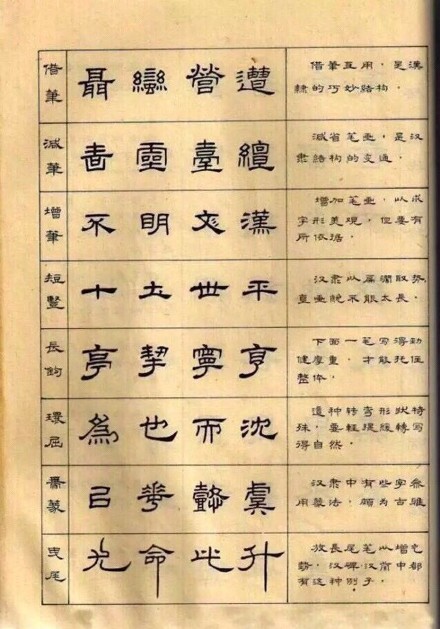 借筆
聶 蠻 營 遭
借筆互用，是漢
隸的巧妙結构。
減筆
書 靈 臺 繵
減省笔画，是汉
隶結构的变通。
增筆
不 明 文 漢
增加笔画，以求
字形美观，但要有
所依据。
短豎
十 土 世 平
汉隶以扁濶取势，
直画不能太長。
長鉤
亭 契 寧 亨
下面一笔写得劲
健厚重，才能托住
整体。
環屈
為 也 而 沈
這种转弯形状特
殊，要輕提緩轉写
得自然。
兼篆
已 華 懿 虞
汉隶中，有些字参
用篆法，頗为古雅
曳尾
允 命 此 升
放長尾笔以增气
势，汉碑汉简中都
有这种例子。